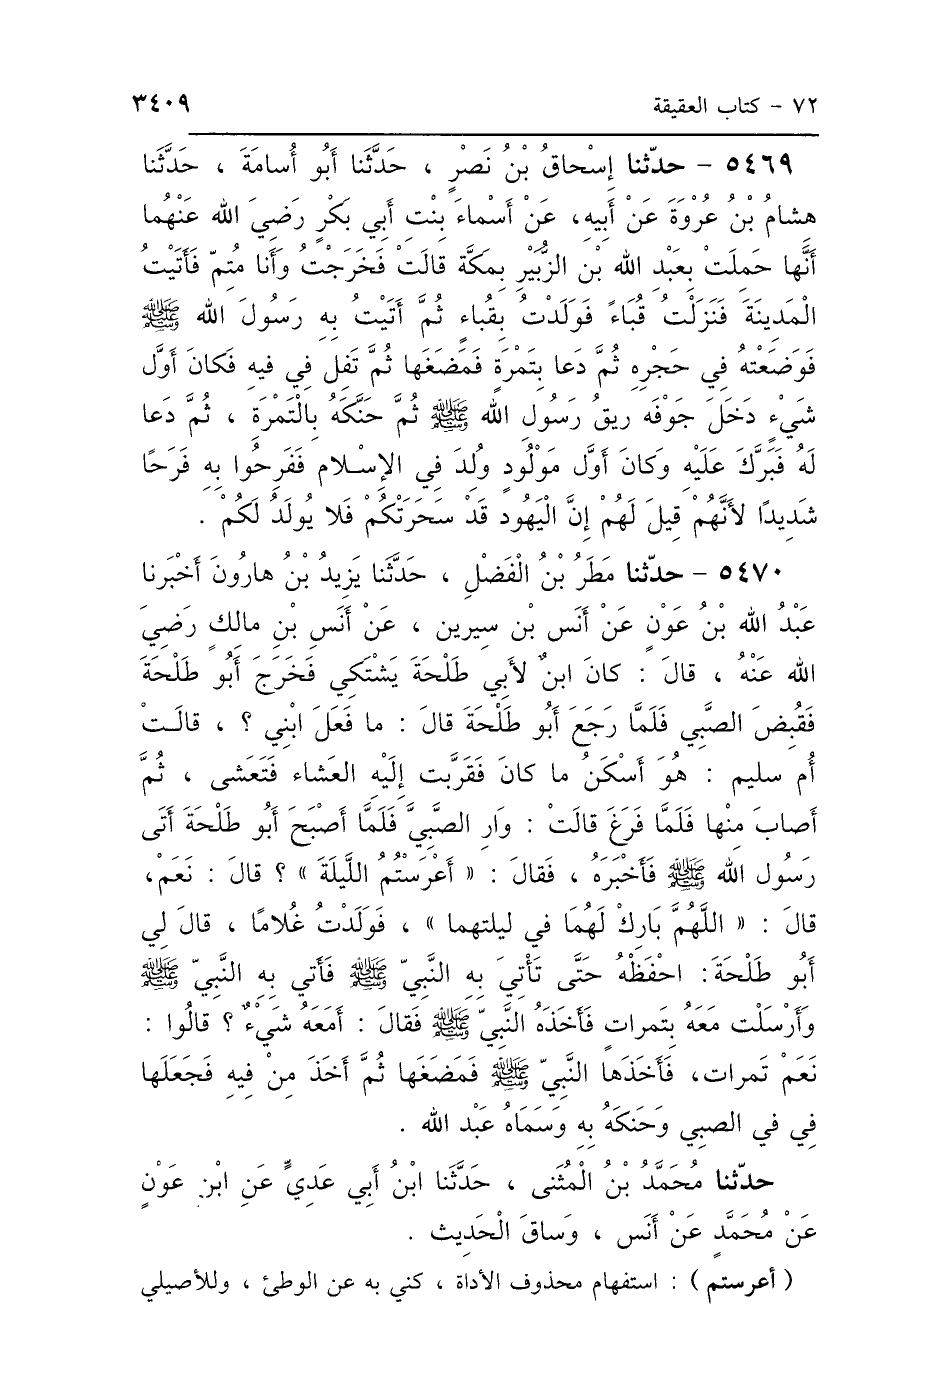 ٧٢ - كتاب العقيقة ٣٤٠٩
٥٤٦٩ - حدّثنا إسْحاقُ بْنُ نَصْرٍ ، حَدَّثَنا أَبُو أُسامَةَ ، حَدَّثَنا
هشامُ بْنُ عُرْوَةَ عَنْ أَبيهِ، عَنْ أَسْماءَ بِنْتِ أَبي بَكْرٍ رَضِيَ الله عَنْهُما
أَنَّها حَمِلَتْ بِعَبْدِ الله بْنِ الزُّبَيْرِ بِمَكَّةَ قالَتْ فَخَرَجْتُ وَأَنا مُتِمّ فَأَتَيْتُ
الْمَدِينَةَ فَنَزَلْتُ قُبَاءً فَوَلَدْتُ بِقُباءٍ ثُمَّ أَتَيْتُ بِهِ رَسُولَ الله ﷺ
فَوَضَعْتهُ فِي حَجْرِهِ ثُمَّ دَعا بِتَمْرَةٍ فَمَضَغَها ثُمَّ تَفَل فِي فيهِ فَكانَ أَوَّل
شَيْءٍ دَخَلَ جَوْفَه رِيقُ رَسُولِ الله ﷺ ثُمَّ حَنَّكَهُ بِالْتَمْرَةِ ، ثُمَّ دَعا
لَهُ فَبَرَّكَ عَلَيْهِ وَكانَ أَوَّل مَوْلُودٍ وُلِدَ فِي الإِسْلامِ فَفَرِحُوا بِهِ فَرَحًا
شَدِيدًا لأَنَّهُمْ قِيلَ لَهُمْ إِنَّ الْيَهُودِ قَدْ سَحَرَتْكُمْ فَلا يُولَدُ لَكُمْ .
٥٤٧٠ - حدّثنا مَطَرُ بْنُ الْفَضْلِ ، حَدَّثَنا يَزِيدُ بْنُ هارُونَ أَخْبَرنا
عَبْدُ الله بْنُ عَوْنٍ عَنْ أَنَسِ بْنِ سيرين ، عَنْ أَنَسِ بْنِ مالِكٍ رَضِيَ
الله عَنْهُ ، قالَ : كانَ ابنٌ لأَبي طَلْحَةَ يَشْتَكِي فَخَرَجَ أَبُو طَلْحَةَ
فَقُبِضَ الصَّبِي فَلَمَّا رَجَعَ أَبُو طَلْحَةَ قالَ : ما فَعَلَ ابْنِي ؟ ، قالَتْ
أُم سليم : هُوَ أَسْكَنُ ما كانَ فَقَرَّبت إِلَيْهِ العَشاء فَتَعَشى ، ثُمَّ
أَصابَ مِنْها فَلَمَّا فَرَغَ قالَتْ : وَارِ الصَّبِيَّ فَلَمَّا أَصْبَحَ أَبُو طَلْحَةَ أَتَى
رَسُولِ الله ﷺ فَأَخْبَرَهُ ، فَقالَ : « أَعْرَسْتُمُ اللَّيلَةَ » ؟ قالَ : نَعَمْ،
قالَ : « اللَّهُمَّ بَارِكْ لَهُمَا في ليلتهما » ، فَوَلَدْتُ غُلامًا ، قالَ لِي
أَبُو طَلْحَةَ: احْفَظْهُ حَتَّى تَأْتِيَ بِهِ النَّبيّ ﷺ فَأَتي بِهِ النَّبيّ ﷺ
وَأَرْسَلْت مَعَهُ بِتَمراتٍ فَأَخَذَهُ النَّبيّ ﷺ فَقالَ : أَمَعَهُ شَيْءٌ ؟ قالُوا :
نَعَمْ تَمرات، فَأَخَذَها النَّبيّ ﷺ فَمَضَغَها ثُمَّ أَخَذَ مِنْ فِيهِ فَجَعَلَها
فِي في الصبي وَحَنكَهُ بِهِ وَسَمَاهُ عَبْد الله .
حدّثنا مُحَمَّدُ بْنُ الْمُثَنى ، حَدَّثَنا ابْنُ أَبي عَدِيٍّ عَنِ ابْنِ عَوْنٍ
عَنْ مُحَمَّدٍ عَنْ أَنَس ، وَساقَ الْحَدِيث .
( أعرستم ) : استفهام محذوف الأداة ، كني به عن الوطئ ، وللأصيلي